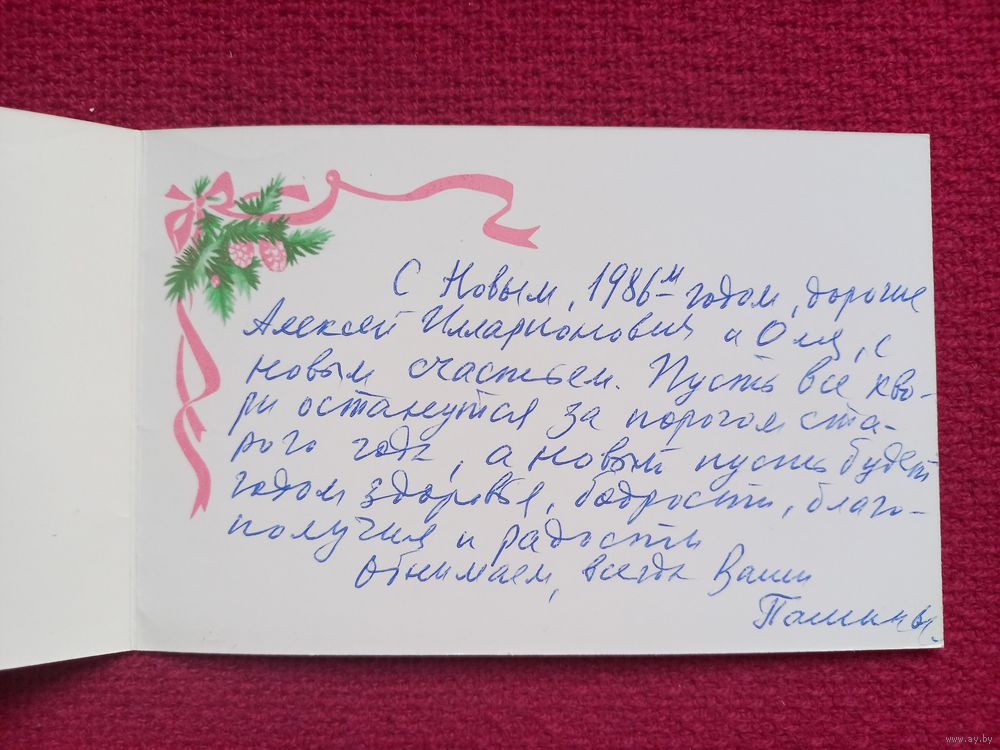 С Новым, 1986-м годом, дорогие
Алексей Илларионович и Оля, с
новым счастьем. Пусть все хво-
ри останутся за порогом ста-
рого года, а новый пусть будет
годом здоровья, бодрости, благо-
получия и радости
Обнимаем, всегда Ваши

www.ay.by